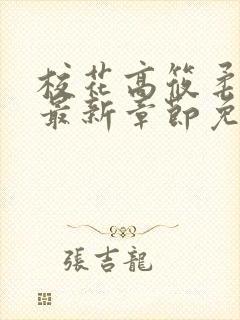 校花高筱柔
最新章節免
張吉龍